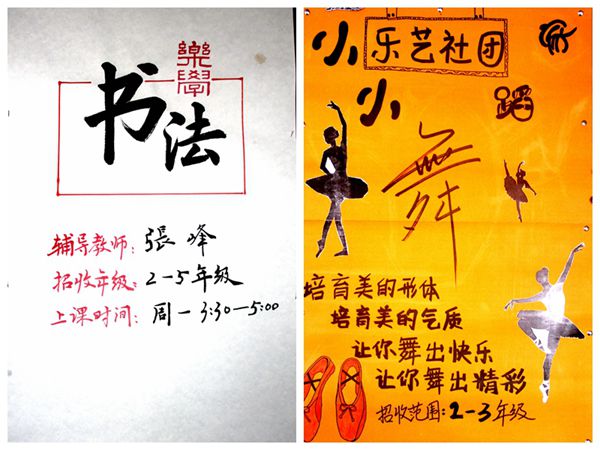 樂學
书法
辅导教师：張峰
招收年级：2-5年级
上课时间：周一 3:30-5:00
乐艺社团
小
小
舞
蹈
培育美的形体
培育美的气质
让你舞出快乐
让你舞出精彩
招收范围：2-3年级